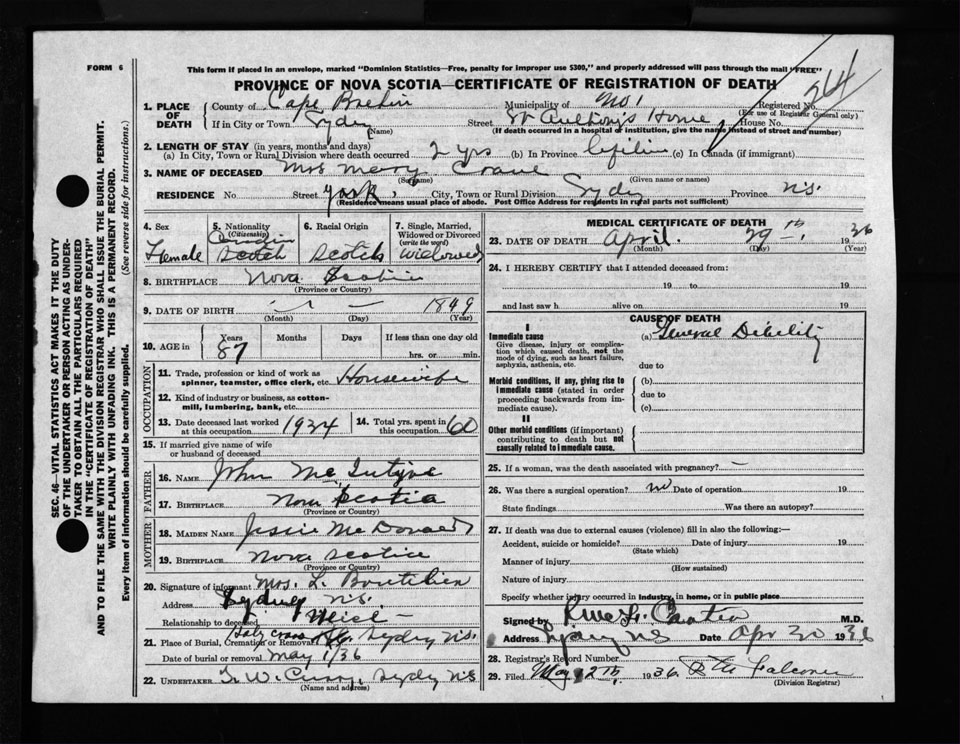 FORM 6
This form if placed in an envelope, marked "Dominion Statistics—Free, penalty for improper use $300," and properly addressed will pass through the mail "FREE"
PROVINCE OF NOVA SCOTIA—CERTIFICATE OF REGISTRATION OF DEATH
1. PLACE OF DEATH
County of Cape Breton Municipality of No 1 Registered No. 264
(For use of Registrar General only)
If in City or Town Sydney Street St Anthony's Home House No.
(Name) (If death occurred in a hospital or institution, give the name instead of street and number)
2. LENGTH OF STAY (in years, months and days)
(a) In City, Town or Rural Division where death occurred 2 yrs (b) In Province Lifetime (c) In Canada (if immigrant)
3. NAME OF DECEASED Mrs Mary Crane
(Surname) (Given name or names)
RESIDENCE No Street York, City, Town or Rural Division Sydney Province N.S.
(Residence means usual place of abode. Post Office Address for residents in rural parts not sufficient)
4. Sex
Female
5. Nationality
(Citizenship)
Canadian
Scotch
6. Racial Origin
Scotch
7. Single, Married, Widowed or Divorced
(write the word)
Widowed
8. BIRTHPLACE Nova Scotia
(Province or Country)
9. DATE OF BIRTH 1849
(Month) (Day)
10. AGE in
Years
87
Months
Days
If less than one day old
hrs. or min.
OCCUPATION
11. Trade, profession or kind of work as spinner, teamster, office clerk, etc. Housewife
12. Kind of industry or business, as cotton-mill, lumbering, bank, etc.
13. Date deceased last worked at this occupation 1934
14. Total yrs. spent in this occupation 60
15. If married give name of wife or husband of deceased
FATHER
16. NAME John McIntyre
17. BIRTHPLACE Nova Scotia
(Province or Country)
MOTHER
18. MAIDEN NAME Jessie McDonald
19. BIRTHPLACE Nova Scotia
(Province or Country)
20. Signature of informant Mrs. L. Boutilier
Address Sydney N.S.
Relationship to deceased Neice
21. Place of Burial, Cremation or Removal Holy Cross Sydney N.S.
Date of burial or removal May 1/36
22. UNDERTAKER T. W. Curry, Sydney N.S
(Name and address)
MEDICAL CERTIFICATE OF DEATH
23. DATE OF DEATH April 29th 1936
(Month) (Day) (Year)
24. I HEREBY CERTIFY that I attended deceased from:
19 to 19
and last saw h alive on 19
CAUSE OF DEATH
I
Immediate cause
Give disease, injury or complication which caused death, not the mode of dying, such as heart failure, asphyxia, asthenia, etc.
(a) General Debility
due to
Morbid conditions, if any, giving rise to immediate cause (stated in order proceeding backwards from immediate cause).
(b)
due to
(c)
II
Other morbid conditions (if important) contributing to death but not causally related to immediate cause.
25. If a woman, was the death associated with pregnancy? —
26. Was there a surgical operation? no Date of operation 19
State findings Was there an autopsy?
27. If death was due to external causes (violence) fill in also the following:—
Accident, suicide or homicide? Date of injury 19
(State which)
Manner of injury
(How sustained)
Nature of injury
Specify whether injury occurred in industry, in home, or in public place
Signed by M.D.
Address Sydney NS Date Apr 30 1936
28. Registrar's Record Number
29. Filed May 12th, 1936. Falconer
(Division Registrar)
SEC. 46—VITAL STATISTICS ACT MAKES IT THE DUTY
OF THE UNDERTAKER OR PERSON ACTING AS UNDER-
TAKER TO OBTAIN ALL THE PARTICULARS REQUIRED
IN THE "CERTIFICATE OF REGISTRATION OF DEATH"
AND TO FILE THE SAME WITH THE DIVISION REGISTRAR WHO SHALL ISSUE THE BURIAL PERMIT.
WRITE PLAINLY WITH UNFADING INK. THIS IS A PERMANENT RECORD.
Every item of information should be carefully supplied. (See reverse side for instructions.)